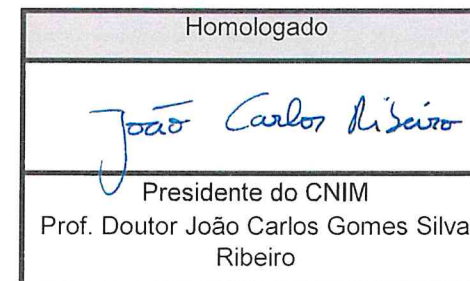 Homologado
João Carlos Ribeiro
Presidente do CNIM
Prof. Doutor João Carlos Gomes Silva
Ribeiro